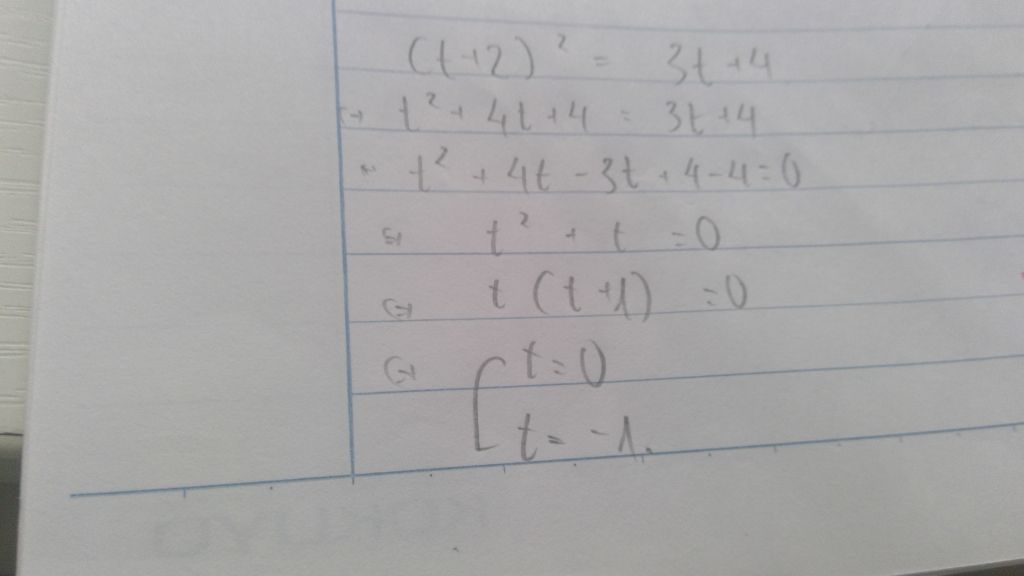 (t+2)² = 3t+4
⇔ t² + 4t + 4 = 3t+4
⇔ t² + 4t - 3t + 4 - 4 = 0
⇔ t² + t = 0
⇔ t (t+1) = 0
⇔ [ t = 0
t = -1.